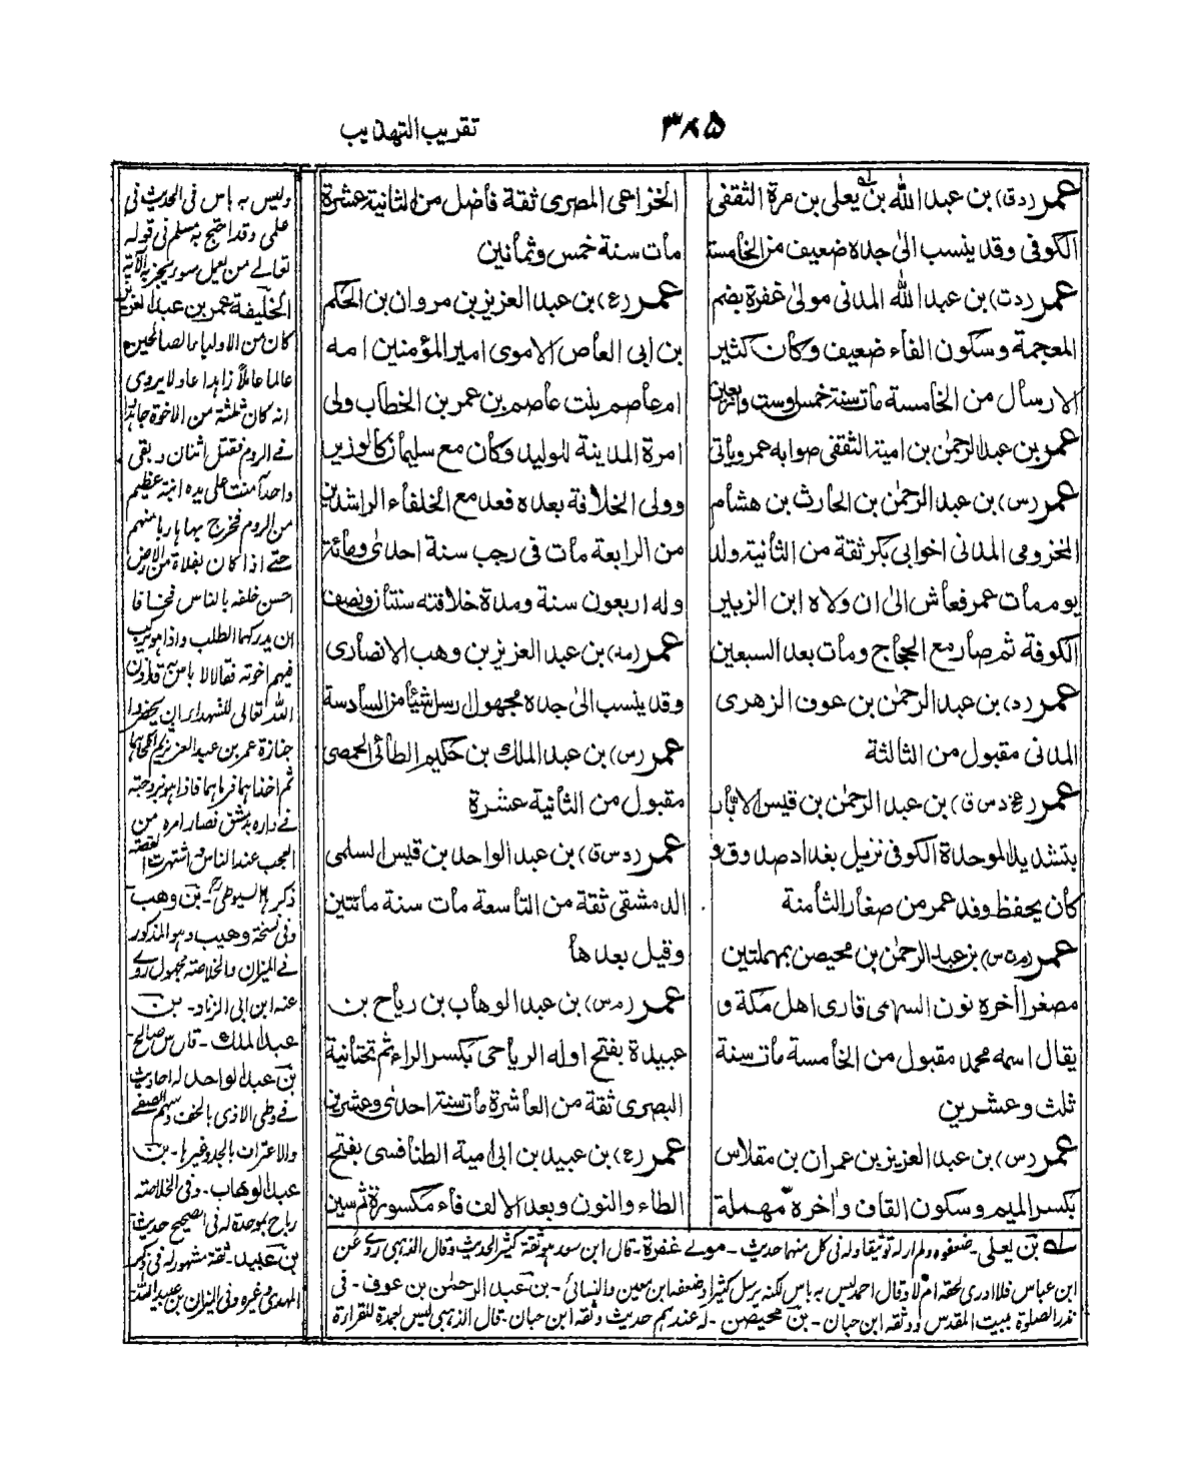 ۳۸۵
تقریب التهذیب
عمر (د ق) بن عبد الله بن یعلی بن مرة الثقفی
الکوفی وقد ینسب الی جده ضعیف من الخامسة
عمر (د ت) بن عبد الله المدنی مولی غفرة بضم
المعجمة وسکون الفاء ضعیف وکان کثیر
الارسال من الخامسة مات سنة خمس او ست واربعین
عمر بن عبد الرحمٰن بن امیة الثقفی صوابه عمرو یأتی
عمر (س) بن عبد الرحمٰن بن الحارث بن هشام
المخزومی المدنی اخو ابی بکر ثقة من الثانیة ولد
یوم مات عمر فعاش الی ان ولاه ابن الزبیر
الکوفة ثم صار مع الحجاج ومات بعد السبعین
عمر (د) بن عبد الرحمٰن بن عوف الزهری
المدنی مقبول من الثالثة
عمر (عخ د س ق) بن عبد الرحمٰن بن قیس الابّار
بتشدید الموحدة الکوفی نزیل بغداد صدوق و
کان یحفظ وقد عمر من صغار الثامنة
عمر (م ت س) بن عبد الرحمٰن بن محیصن بمهملتین
مصغرا آخره نون السهمی قاری اهل مکة و
یقال اسمه محمد مقبول من الخامسة مات سنة
ثلث وعشرین
عمر (س) بن عبد العزیز بن عمران بن مقلاص
بکسر المیم وسکون القاف وآخره مهملة
الخزاعی المصری ثقة فاضل من الثانیة عشرة
مات سنة خمس وثمانین
عمر (ع) بن عبد العزیز بن مروان بن الحکم
بن ابی العاص الاموی امیر المؤمنین امه
ام عاصم بنت عاصم بن عمر بن الخطاب ولی
امرة المدینة للولید وکان مع سلیمان کالوزیر
وولی الخلافة بعده فعد مع الخلفاء الراشدین
من الرابعة مات فی رجب سنة احدی ومائة
وله اربعون سنة ومدة خلافته سنتان ونصف
عمر (مد) بن عبد العزیز بن وهب الانصاری
وقد ینسب الی جده مجهول رسل شیئا من السادسة
عمر (س) بن عبد الملک بن حکیم الطائی الحمصی
مقبول من الثانیة عشرة
عمر (د س ق) بن عبد الواحد بن قیس السلمی
الدمشقی ثقة من التاسعة مات سنة مائتین
وقیل بعدها
عمر (م س) بن عبد الوهاب بن ریاح بن
عبیدة بفتح اوله الریاحی بکسر الراء ثم تحتانیة
البصری ثقة من العاشرة مات سنة احدی وعشرین
عمر (ع) بن عبید بن ابی امیة الطنافسی بفتح
الطاء والنون وبعد الالف فاء مکسورة ثم سین
ولیس به باس فی الحدیث فی
علمی وقد احتج به مسلم فی قوله
تعالے من یعمل سوء یجز به الآیة
الخلیفة عمر بن عبد العزیز
کان من الاولیاء الصالحین
عالما عاملا زاهدا عادلا یروی
انه کان ثلثة من الاخوة
فے الروم فقتل اثنان وبقی
واحد امنت علی یده ابنة عظیم
من الروم فخرج بها هاربا منهم
حتے اذا کان بفلاة من الارض
احسن خلفه بالناس فخافا
ان یدرکهما الطلب واذا هو برکب
فیهم اخوته فقالا لا باس
الله تعالی للشهداء ان یحضروا
جنازة عمر بن عبد العزیز
ثم اخذاهما فاذا هو بزوجته
فے داره بدمشق فصار امره من
العجب عند الناس واشتهرت القصة
ذکرها السیوطی رح - بن وهب
وفی نسخة وهیب وهو المذکور
فے المیزان والخلاصة مجهول روے
عنه ابن ابی الزناد - بن
عبد الملک - قال س صالح -
بن عبد الواحد له احادیث
فے وطی الاذی بالخف
والاعتراف بالجد وغیرها - بن
عبد الوهاب - وفی الخلاصة
رباح بموحدة له فی الصحیح حدیث
بن عبید - ثقة مشهور له فی
المهدی وغیره وفی المیزان بن عبید الله
له بن یعلی - ضعفوه ولم ار له توثیقا وله فی کل منهما حدیث - مولے غفرة - قال ابن سعد هو ثقة کثیر الحدیث وقال الذهبی روے عن
ابن عباس فلا ادری لحقه ام لا وقال احمد لیس به باس لکنه یرسل کثیرا وضعفه ابن معین والنسائی - بن عبد الرحمٰن بن عوف - فی
نذر الصلوة ببیت المقدس ووثقه ابن حبان - بن محیصن - له عندهم حدیث وثقه ابن حبان - قال الذهبی لیس بعمدة للقراءة